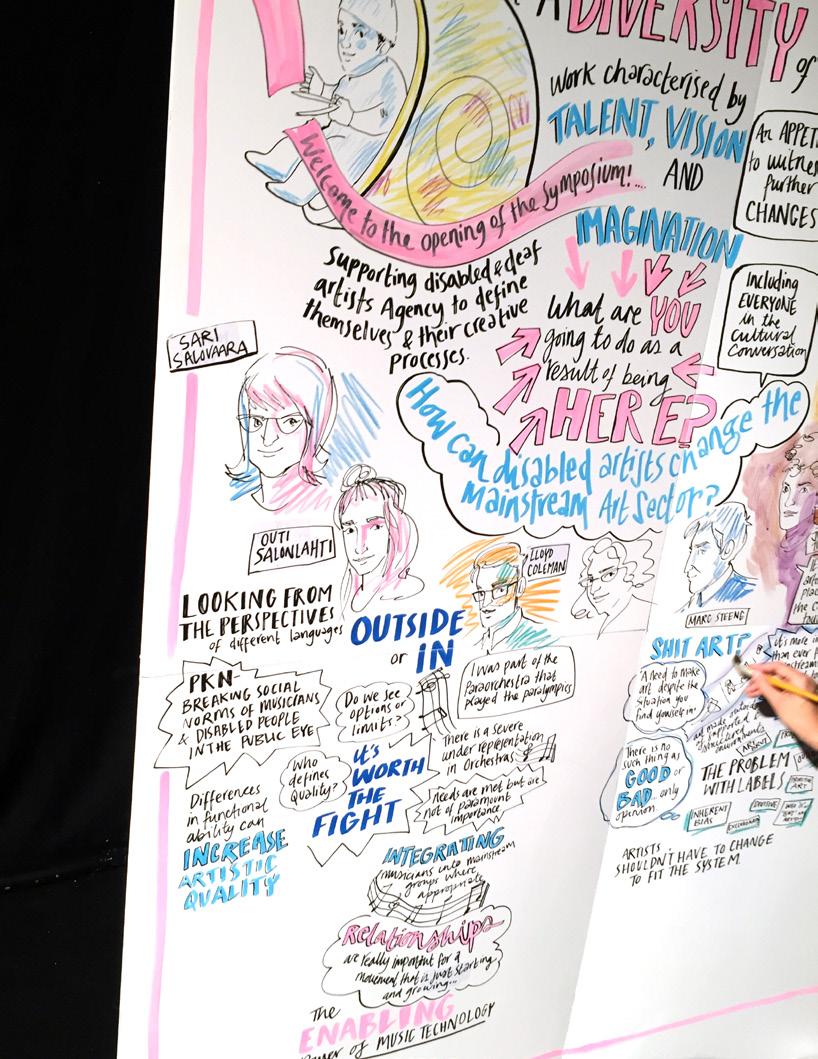 A DIVERSITY
of
Work characterised by
TALENT, VISION
AND
IMAGINATION
Welcome to the opening of the Symposium!...
Supporting disabled & deaf
artists Agency to define
themselves & their creative
processes.
What are YOU
going to do as a
result of being
HERE?
An APPET
to witnes
further
CHANGES
Including
EVERYONE
in the
Cultural
Conversation
How can disabled artists change the
Mainstream Art Sector?
SARI
SALOVAARA
OUTI
SALONLAHTI
LOOKING FROM
THE PERSPECTIVES
of different languages
OUTSIDE
or IN
LLOYD
COLEMAN
MARC STEENE
PKN-
BREAKING SOCIAL
NORMS OF MUSICIANS
& DISABLED PEOPLE
IN THE PUBLIC EYE
Do we see
options or
limits?
Who
defines
Quality?
It's
WORTH
THE
FIGHT
Differences
in functional
ability can
INCREASE
ARTISTIC
QUALITY
I was part of the
Paraorchestra that
played the paralympics
There is a severe
under representation
in Orchestras
Needs are met but are
not of paramount
importance
INTEGRATING
musicians into mainstream
groups where
appropriate
Relationships
are really important for a
movement that is just starting
and growing...
The
ENABLING
Power of MUSIC TECHNOLOGY
SHIT ART?
A need to make
art despite the
situation you
find yourself in!
There is no
such thing as
GOOD or
BAD... only
opinion
THE PROBLEM
WITH LABELS
INHERENT
BIAS
ARTISTS
SHOULDN'T HAVE TO CHANGE
TO FIT THE SYSTEM.